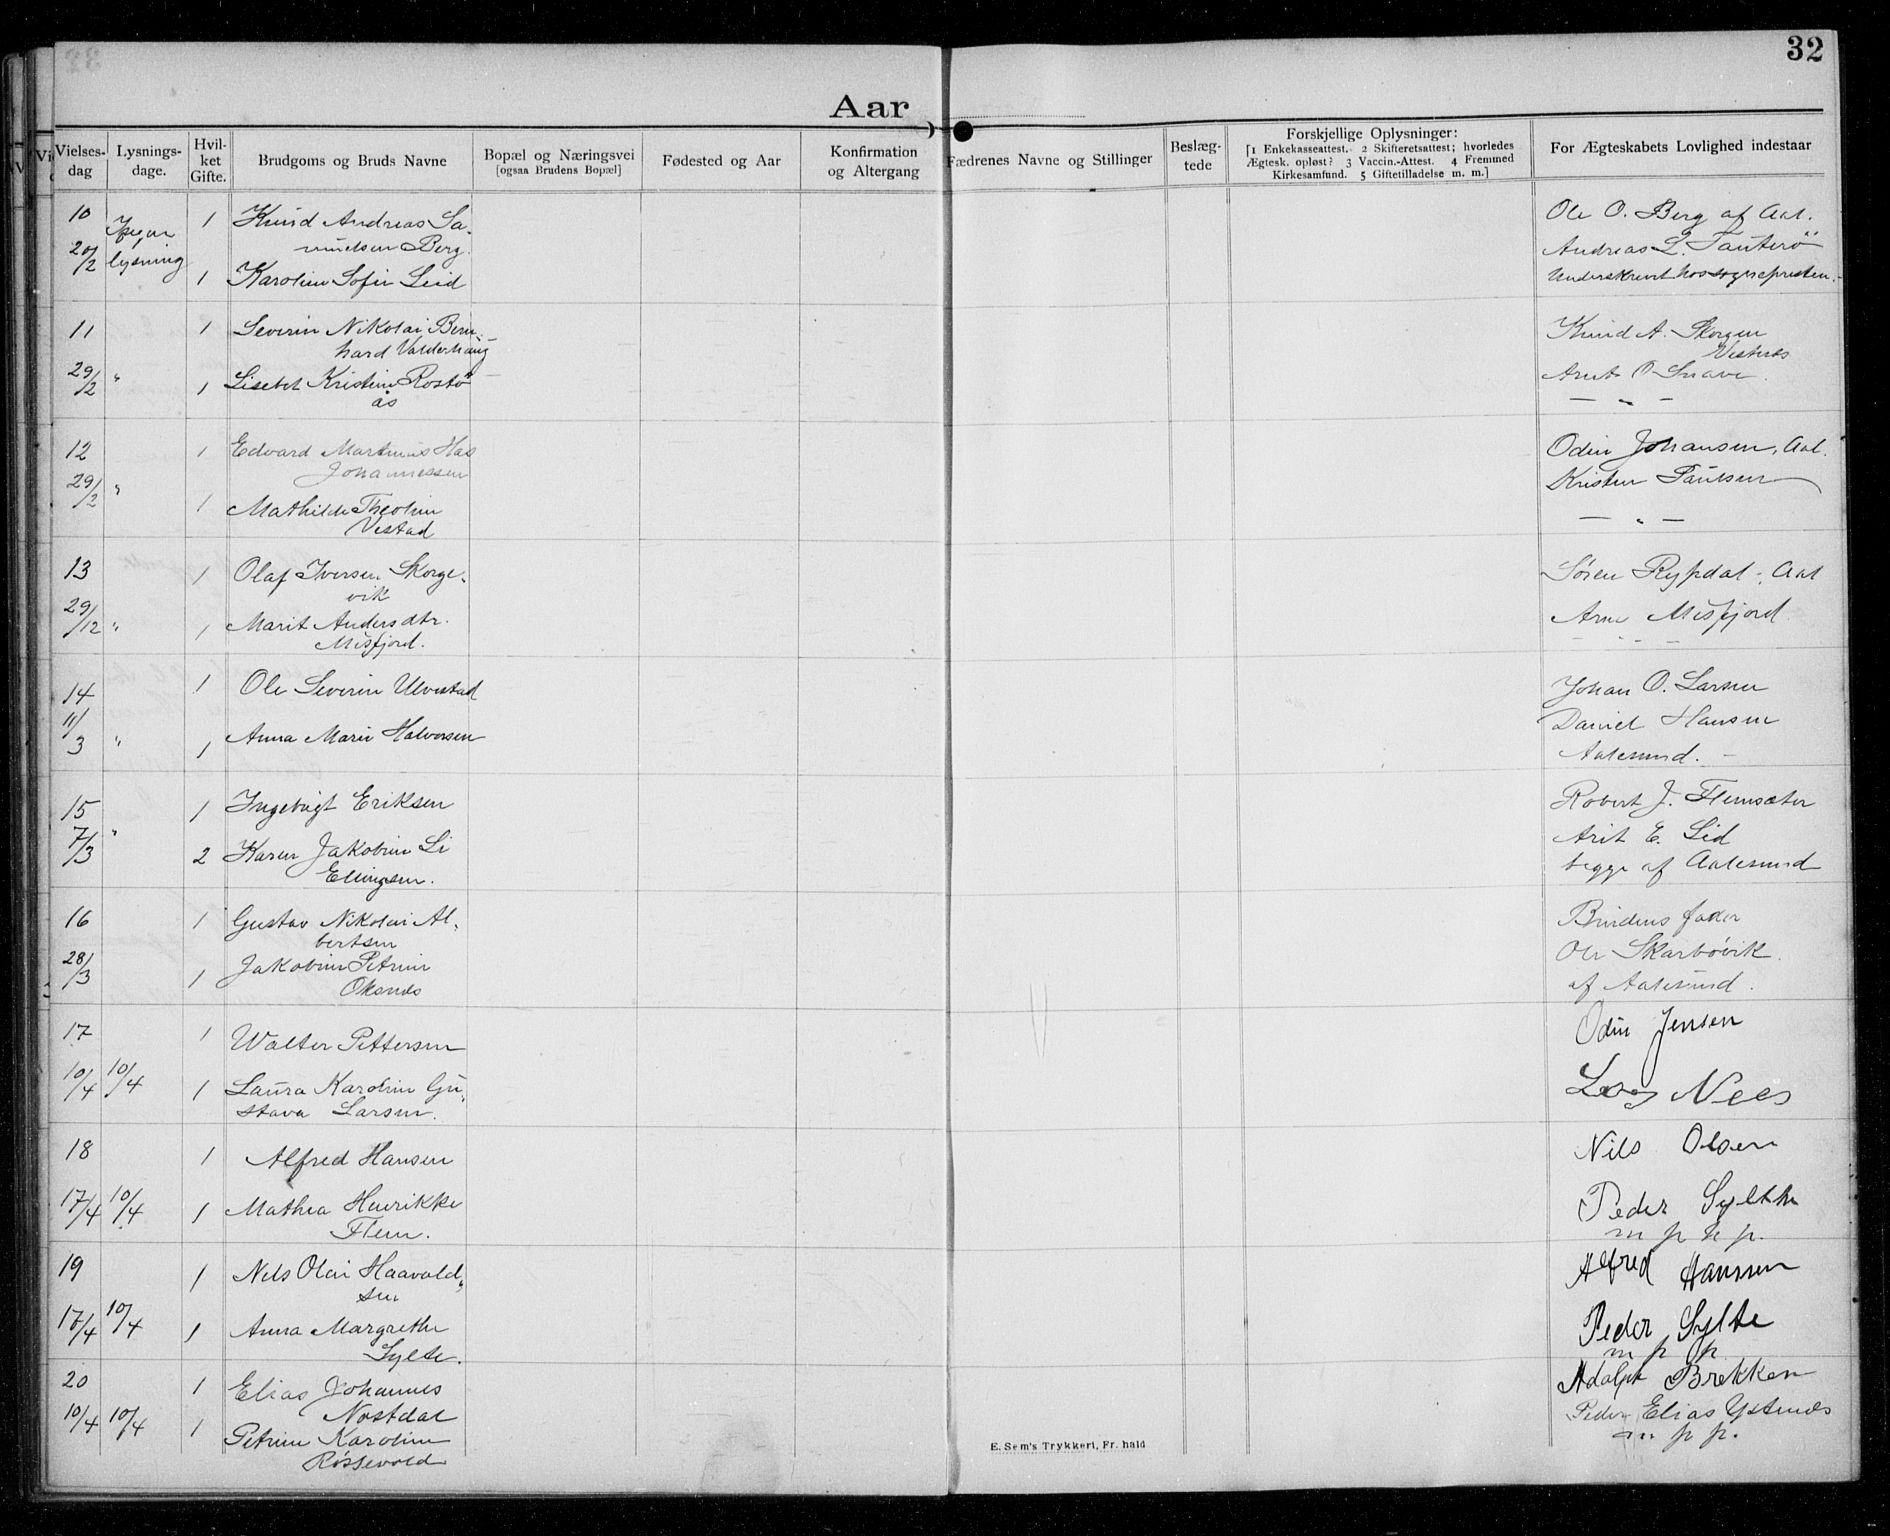 32
Aar
Vielses-
dag
Lysnings-
dage.
Hvil-
ket
Gifte.
Brudgoms og Bruds Navne
Bopæl og Næringsvei
[ogsaa Brudens Bopæl]
Fødested og Aar
Konfirmation
og Altergang
Fædrenes Navne og Stillinger
Beslæg-
tede
Forskjellige Oplysninger:
[1 Enkekasseattest. 2 Skifteretsattest; hvorledes
Ægtesk. opløst? 3 Vaccin.-Attest. 4 Fremmed
Kirkesamfund. 5 Giftetilladelse m. m.]
For Ægteskabets Lovlighed indestaar
10 1 Knud Andreas Sa- Ole O. Berg af Aal.
20/2 lysning muelsen Berg. Andreas L. Tauterö
1 Karoline Sofie Leid Underskrevet hos sognepresten.
11 1 Severin Nikolai Bern- Knud A. Skorgen
hard Valderhaug Vestnes
29/2 " 1 Lisebet Kristine Rostö Arnt O
ås — " —
12 1 Edvard Martinus Has Odin Johansen, Aal.
Johannessen Kristen Paulsen
29/2 " 1 Mathilde Theoline — " —
Vestad
13 1 Olaf Iversen Skorge- Søren Rypdal, Aal
vik
29/12 " 1 Marit Andersdtr. Arne Misfjord
Misfjord.
14 1 Ole Severin Ulvestad Johan O. Larsen
11/3 " 1 Anna Marie Halvorsen Daniel Hansen
Aalesund. —
15 1 Ingebrigt Eriksen Robert J. Flemsæter
7/3 " 2 Karen Jakobine Li Arit E. Lid
Ellingsen. begge af Aalesund
16 1 Gustav Nikolai Al- Brudens fader
bertsen Ole Skarbövik
28/3 1 Jakobine Petrine af Aalesund.
Oksnes
17 1 Walter Pettersen Odin Jensen
10/4 10/4 1 Laura Karoline Gu- Nees
stava Larsen.
18 1 Alfred Hansen Nils Olsen
17/4 10/4 1 Mathea Henrikke Peder Sylthe
Flem. m p p.
19 1 Nels Olai Haavald- Alfred Hanssen
sen
17/4 10/4 1 Anna Margrethe Peder Sylte
Sylte. m p p
20 1 Elias Johannes Adolph Brekken
Nostdal Peder Elias Ystenes
10/4 10/4 1 Petrine Karoline m p p.
Røssevold
E. Sem's Trykkeri, Fr. hald